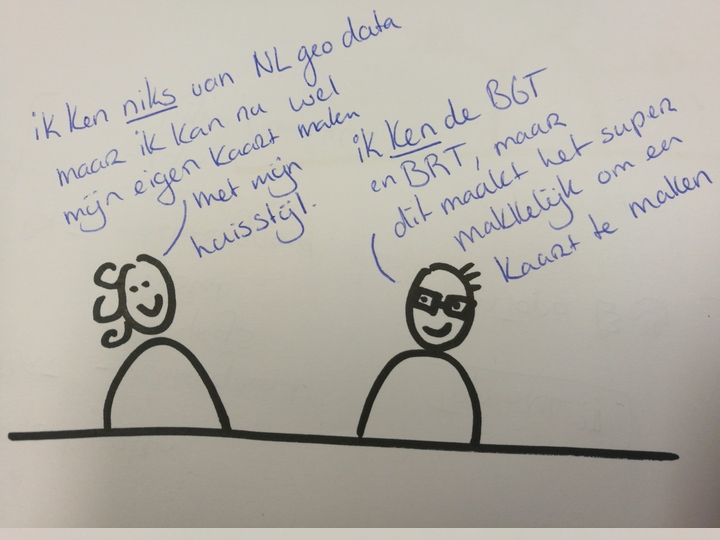 ik ken niks van NL geo data
maar ik kan nu wel
mijn eigen kaart maken
met mijn
huisstijl.
ik ken de BGT
en BRT, maar
dit maakt het super
makkelijk om een
kaart te maken